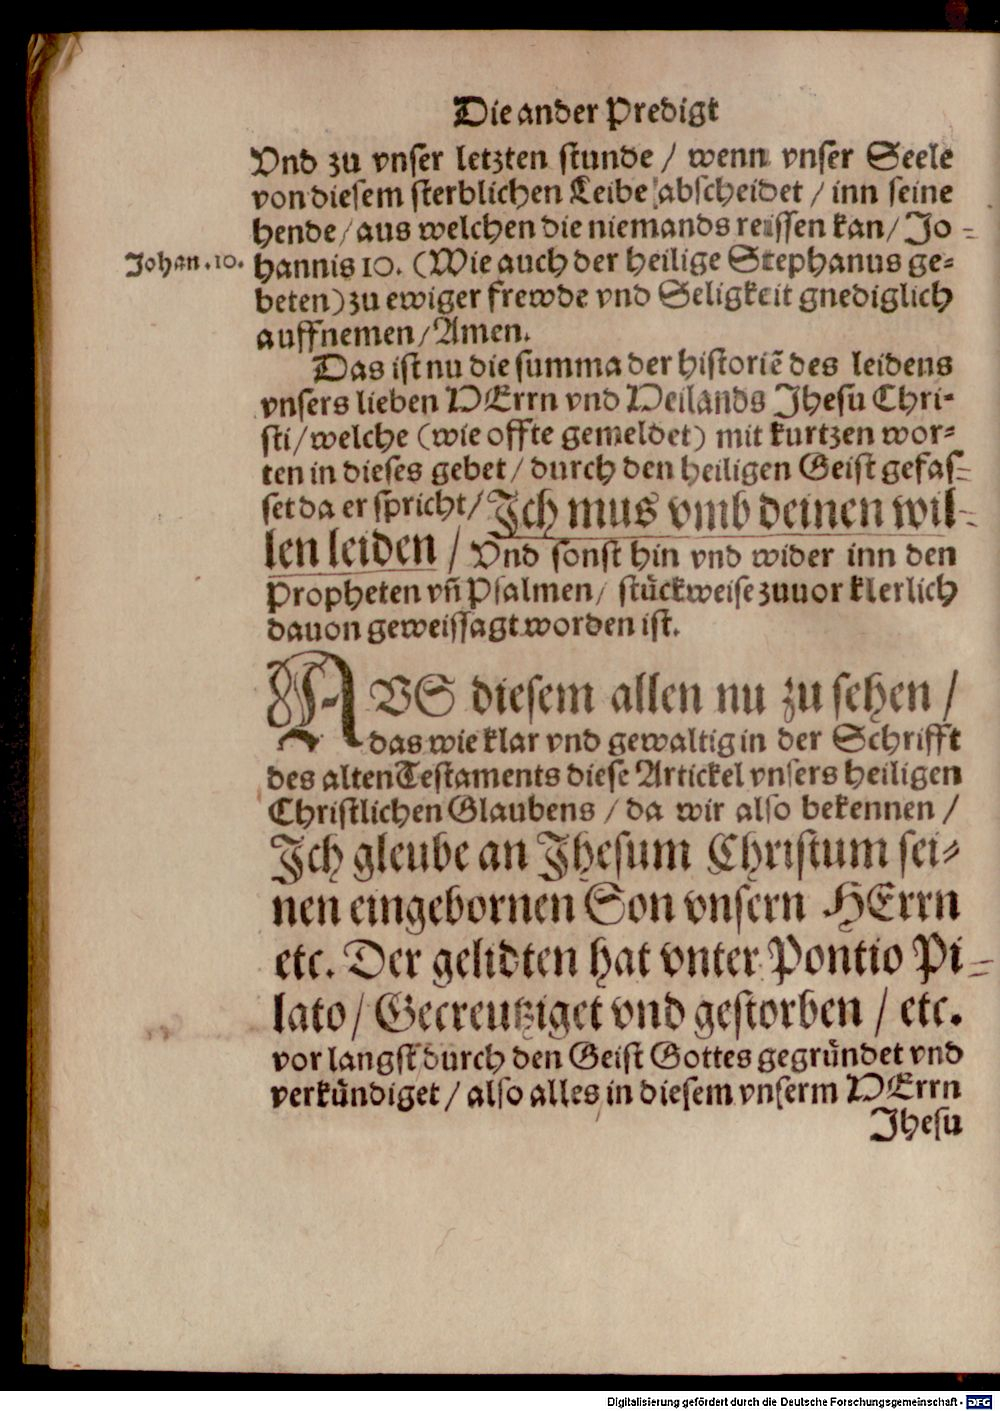 Die ander Predigt
Vnd zu vnser letzten stunde / wenn vnser Seele
von diesem sterblichen Leibe abscheidet / inn seine
hende / aus welchen die niemands reissen kan / Jo-
Johan. 10.
hannis 10. (Wie auch der heilige Stephanus ge-
beten) zu ewiger frewde vnd Seligkeit gnediglich
auffnemen / Amen.
Das ist nu die summa der historiẽ des leidens
vnsers lieben HErrn vnd Heilands Jhesu Chri-
sti / welche (wie offte gemeldet) mit kurtzen wor-
ten in dieses gebet / durch den heiligen Geist gefas-
set da er spricht / Jch mus vmb deinen wil-
len leiden / Vnd sonst hin vnd wider inn den
Propheten vñ Psalmen / stückweise zuuor klerlich
dauon geweissagt worden ist.
AVS diesem allen nu zu sehen /
das wie klar vnd gewaltig in der Schrifft
des alten Testaments diese Artickel vnsers heiligen
Christlichen Glaubens / da wir also bekennen /
Jch gleube an Jhesum Christum sei-
nen eingebornen Son vnsern HErrn
etc. Der gelidten hat vnter Pontio Pi-
lato / Gecreutziget vnd gestorben / etc.
vor langst durch den Geist Gottes gegründet vnd
verkündiget / also alles in diesem vnserm HErrn
Jhesu
Digitalisierung gefördert durch die Deutsche Forschungsgemeinschaft - DFG